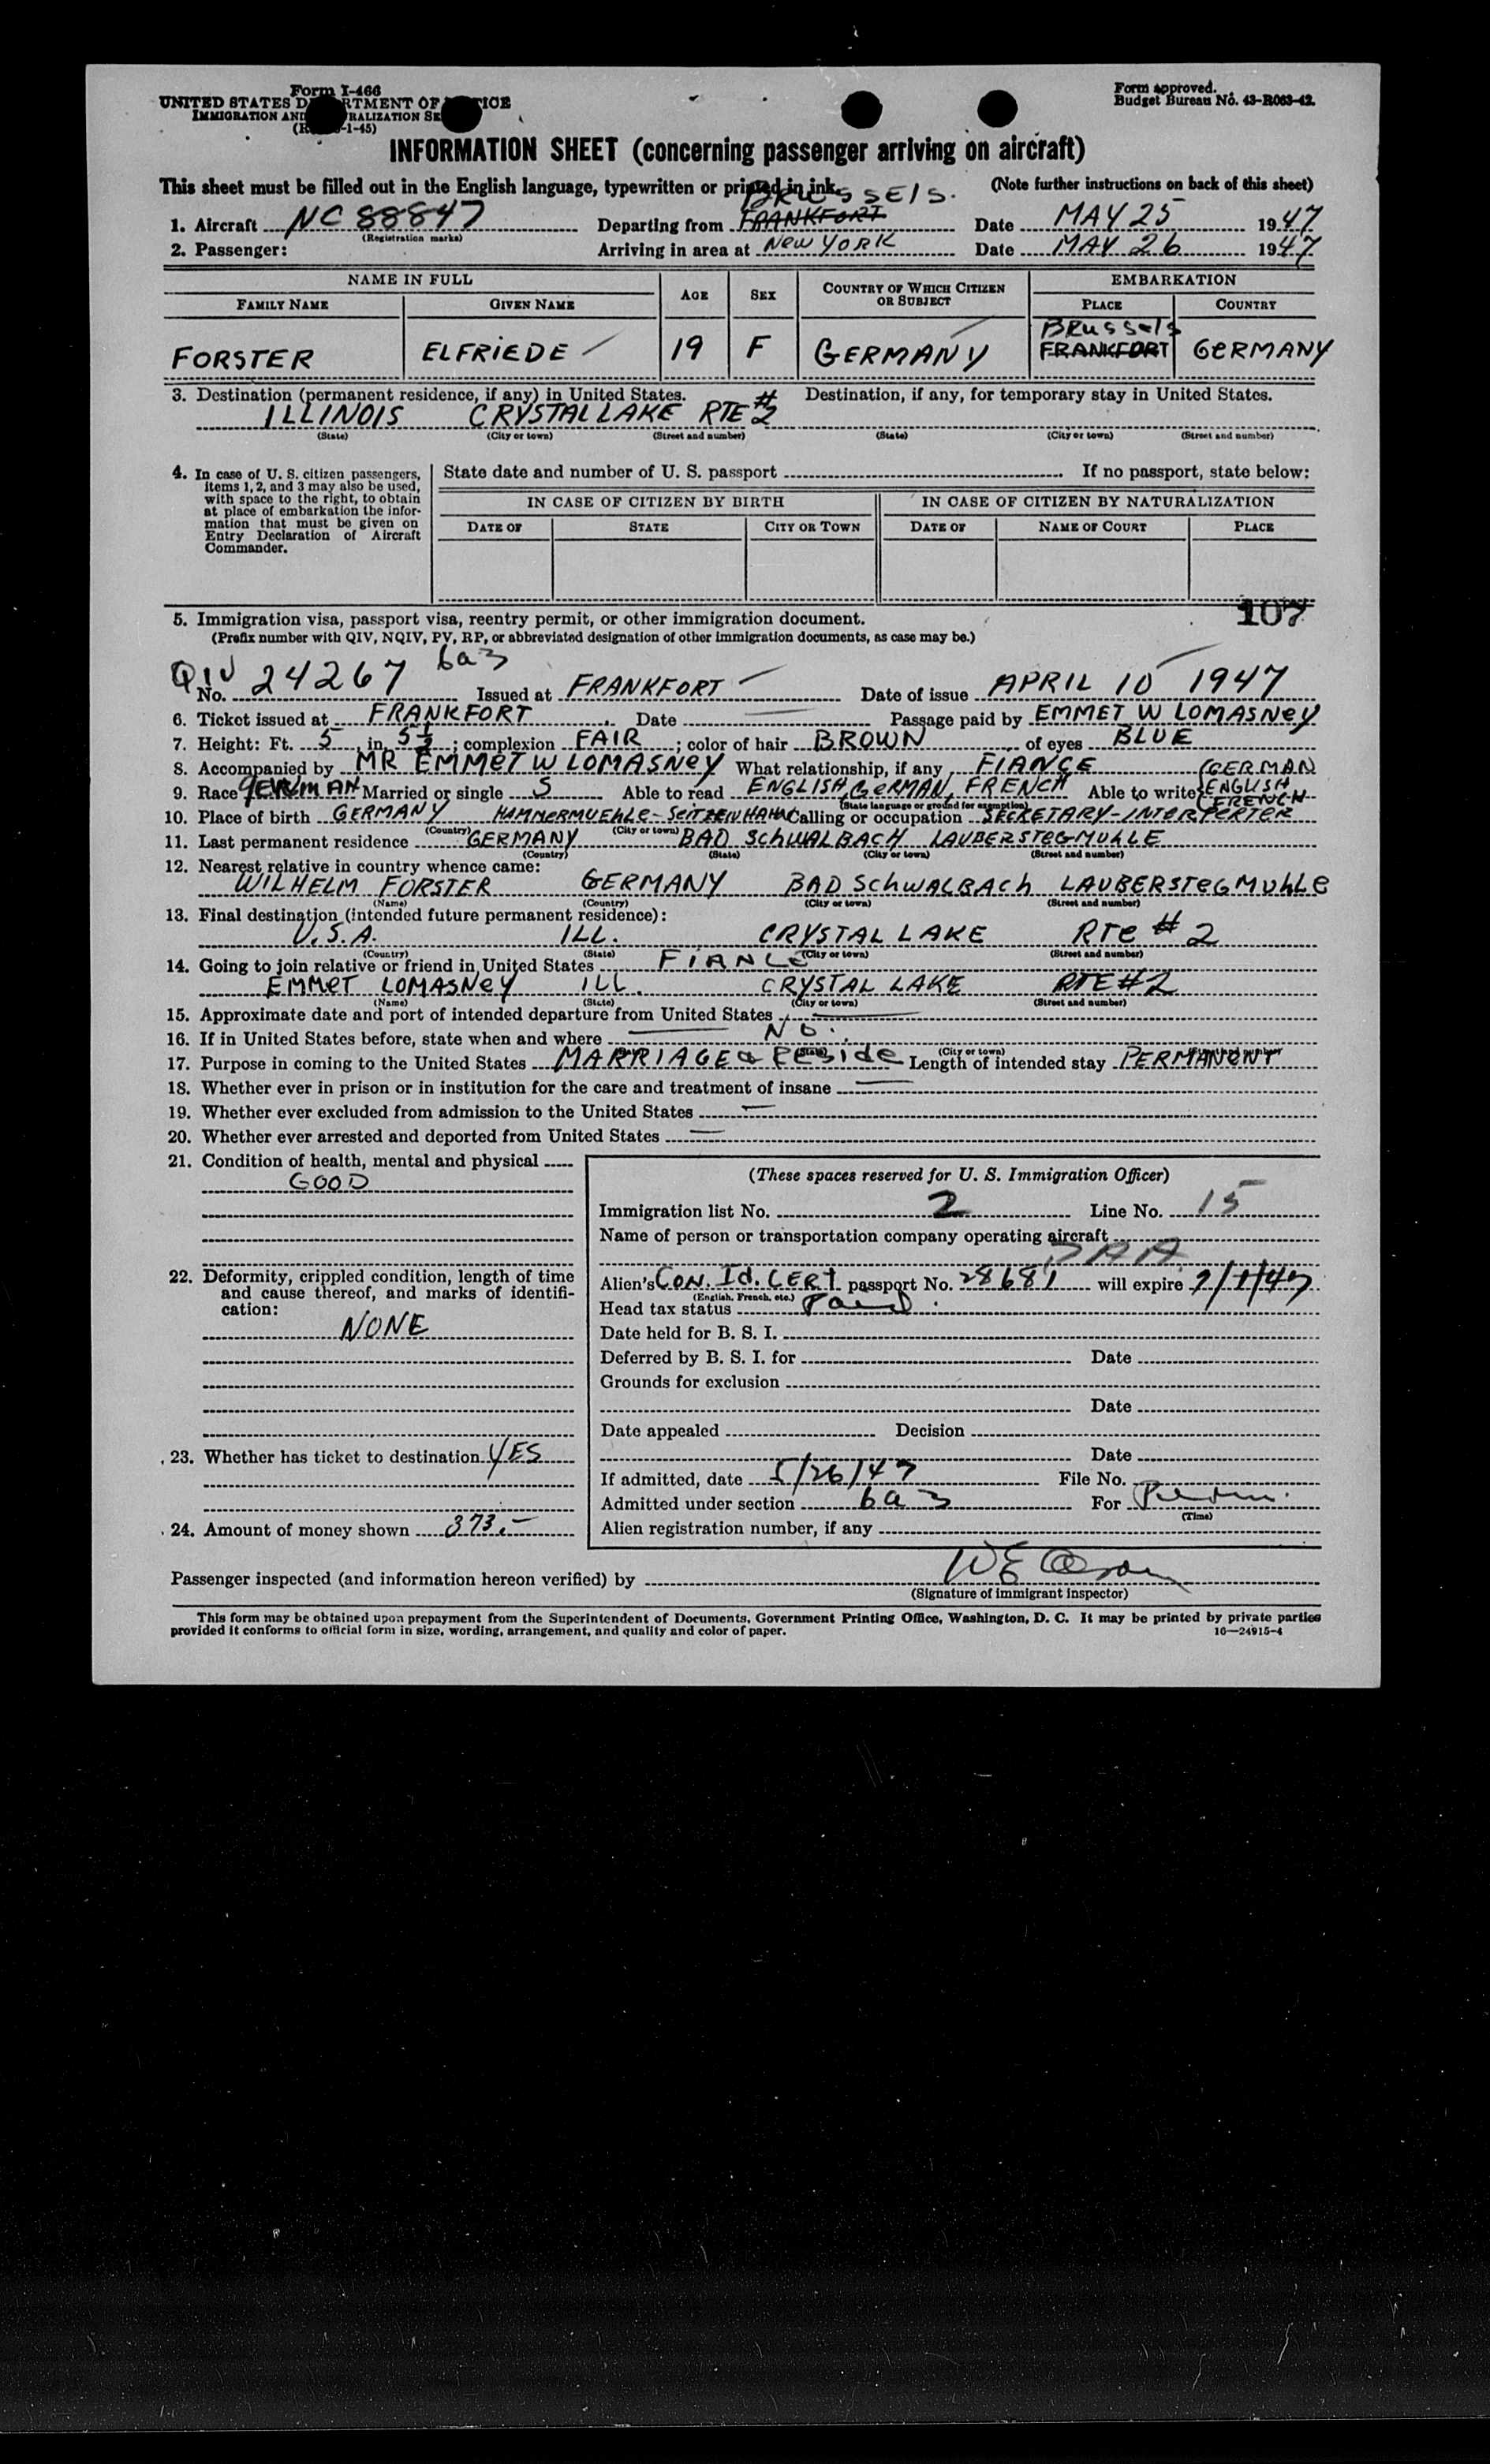 Form I-466
UNITED STATES D RTMENT OF ICE
IMMIGRATION AND RALIZATION SE
-1-45)
Form approved.
Budget Bureau No. 43-R063-42.
INFORMATION SHEET (concerning passenger arriving on aircraft)
This sheet must be filled out in the English language, typewritten or printed in ink. (Note further instructions on back of this sheet)
BRUSSELS.
1. Aircraft NC 88847 Departing from FRANKFORT Date MAY 25 1947
(Registration marks)
2. Passenger: Arriving in area at NEW YORK Date MAY 26 1947
NAME IN FULL AGE SEX COUNTRY OF WHICH CITIZEN OR SUBJECT EMBARKATION
FAMILY NAME GIVEN NAME PLACE COUNTRY
BRUSSELS
FORSTER ELFRIEDE 19 F GERMANY FRANKFORT GERMANY
3. Destination (permanent residence, if any) in United States. Destination, if any, for temporary stay in United States.
ILLINOIS CRYSTAL LAKE RTE #2
(State) (City or town) (Street and number) (State) (City or town) (Street and number)
4. In case of U. S. citizen passengers, items 1, 2, and 3 may also be used, with space to the right, to obtain at place of embarkation the information that must be given on Entry Declaration of Aircraft Commander.
State date and number of U. S. passport If no passport, state below:
IN CASE OF CITIZEN BY BIRTH IN CASE OF CITIZEN BY NATURALIZATION
DATE OF STATE CITY OR TOWN DATE OF NAME OF COURT PLACE
107
5. Immigration visa, passport visa, reentry permit, or other immigration document.
(Prefix number with QIV, NQIV, PV, RP, or abbreviated designation of other immigration documents, as case may be.)
6a3
QIV No. 24267 Issued at FRANKFORT Date of issue APRIL 10 1947
6. Ticket issued at FRANKFORT Date Passage paid by EMMET W LOMASNEY
7. Height: Ft. 5, in. 5½; complexion FAIR; color of hair BROWN of eyes BLUE
8. Accompanied by MR EMMET W LOMASNEY What relationship, if any FIANCE
9. Race GERMAN Married or single S Able to read ENGLISH, GERMAN, FRENCH Able to write GERMAN ENGLISH FRENCH
(State language or ground for exemption)
10. Place of birth GERMANY HAMMERMUEHLE-SEITZENHAHN Calling or occupation SECRETARY-INTERPERTER
(Country) (City or town)
11. Last permanent residence GERMANY BAD SCHWALBACH LAUBERSTEGMUHLE
(Country) (State) (City or town) (Street and number)
12. Nearest relative in country whence came:
WILHELM FORSTER GERMANY BAD SCHWALBACH LAUBERSTEGMUHLE
(Name) (Country) (City or town) (Street and number)
13. Final destination (intended future permanent residence):
U.S.A. ILL. CRYSTAL LAKE RTE #2
(Country) (State) (City or town) (Street and number)
14. Going to join relative or friend in United States FIANCE
EMMET LOMASNEY ILL. CRYSTAL LAKE RTE #2
(Name) (State) (City or town) (Street and number)
15. Approximate date and port of intended departure from United States
16. If in United States before, state when and where NO.
(State) (City or town) (Street and number)
17. Purpose in coming to the United States MARRIAGE & RESIDE Length of intended stay PERMANENT
18. Whether ever in prison or in institution for the care and treatment of insane
19. Whether ever excluded from admission to the United States
20. Whether ever arrested and deported from United States
21. Condition of health, mental and physical
GOOD
22. Deformity, crippled condition, length of time and cause thereof, and marks of identification:
NONE
23. Whether has ticket to destination YES
24. Amount of money shown 373.-
(These spaces reserved for U. S. Immigration Officer)
Immigration list No. 2 Line No. 15
Name of person or transportation company operating aircraft
PAA
Alien's CON. Id. CERT passport No. 28681 will expire
(English, French, etc.)
Head tax status Paid.
Date held for B. S. I.
Deferred by B. S. I. for Date
Grounds for exclusion
Date
Date appealed Decision
Date
If admitted, date 5/26/47 File No.
Admitted under section 6a3 For Perm.
(Time)
Alien registration number, if any
Passenger inspected (and information hereon verified) by
(Signature of immigrant inspector)
This form may be obtained upon prepayment from the Superintendent of Documents, Government Printing Office, Washington, D. C. It may be printed by private parties
provided it conforms to official form in size, wording, arrangement, and quality and color of paper. 16—24915-4